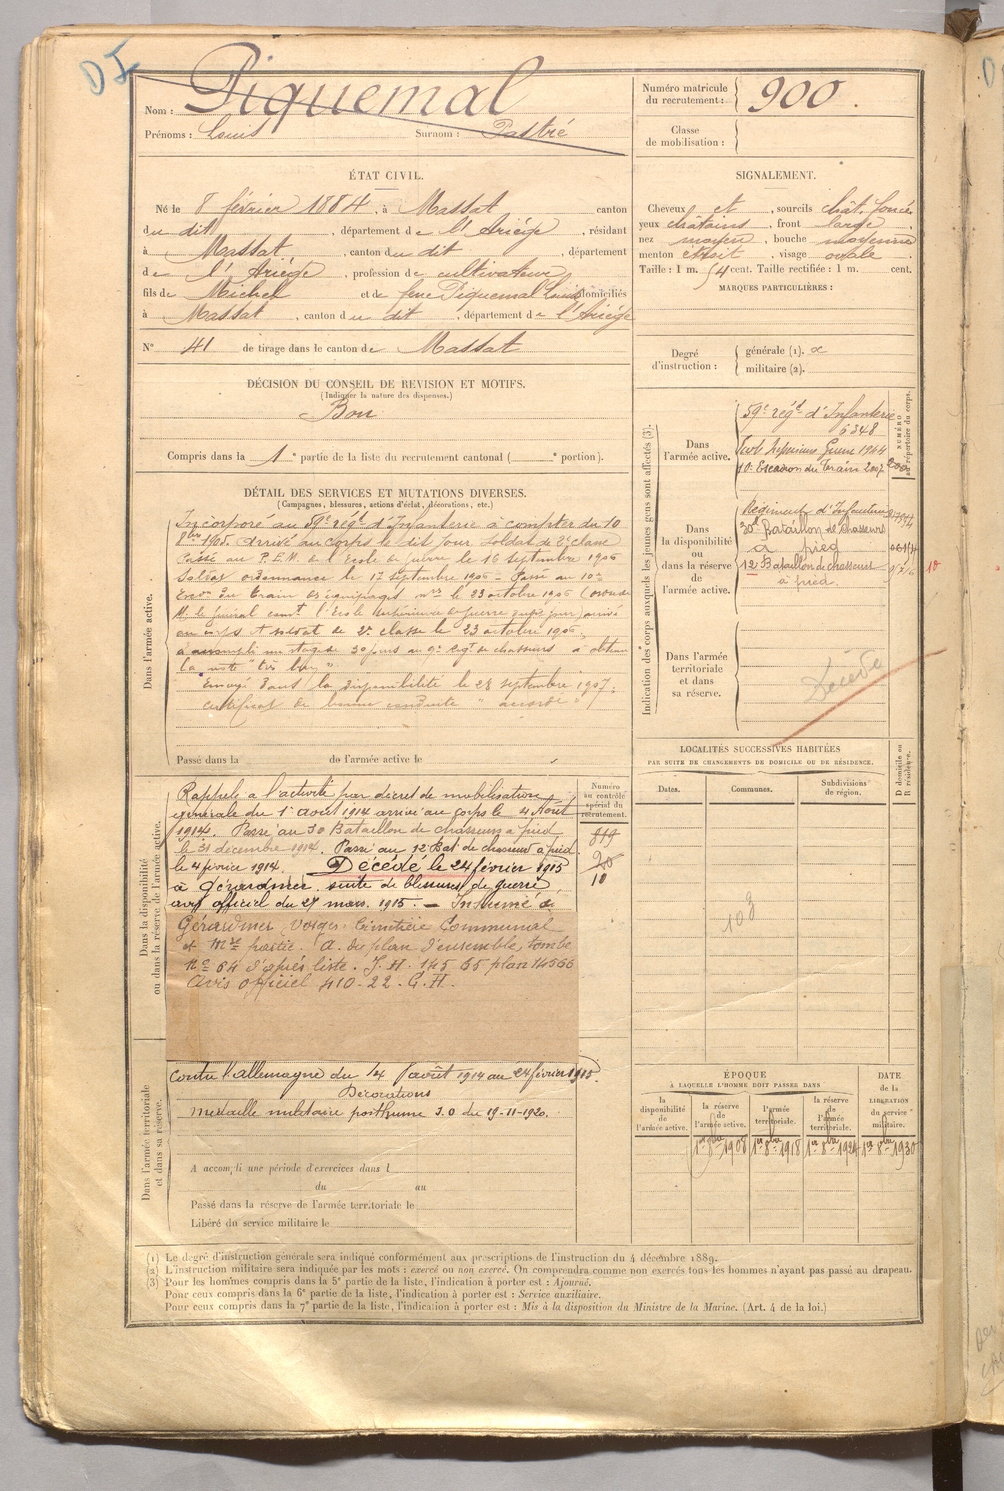 DI
Nom : Piquemal
Prénoms : Louis Surnom : Pastré
Numéro matricule du recrutement : 900.
Classe de mobilisation :
ÉTAT CIVIL.
Né le 8 février 1884, à Massat canton
du dit, département de l'Ariège, résidant
à Massat, canton du dit, département
de l'Ariège, profession de cultivateur
fils de Michel et de feue Piquemal Louise domiciliés
à Massat, canton du dit, département de l'Ariège
N° 41 de tirage dans le canton de Massat
SIGNALEMENT.
Cheveux et, sourcils chât. foncés
yeux châtains, front large.
nez moyen, bouche moyenne
menton étroit, visage ovale.
Taille : 1 m. 54 cent. Taille rectifiée : 1 m. cent.
MARQUES PARTICULIÈRES :
Degré d'instruction : générale (1).
militaire (2).
DÉCISION DU CONSEIL DE REVISION ET MOTIFS.
(Indiquer la nature des dispenses.)
Bon
Compris dans la 1e partie de la liste du recrutement cantonal ( e portion).
DÉTAIL DES SERVICES ET MUTATIONS DIVERSES.
(Campagnes, blessures, actions d'éclat, décorations, etc.)
Dans l'armée active.
Incorporé au 59e rég.t d'Infanterie à compter du 10
8bre 1905. Arrivé au corps le dit jour. Soldat de 2e classe
Passé au P.E.M. de l'Ecole de guerre le 16 septembre 1906
Soldat ordonnance le 17 septembre 1906 - Passé au 10e
Escon du Train des équipages mres le 23 octobre 1906
M. le général comt l'école supérieure de guerre arrivé
au corps et soldat de 2e classe le 23 octobre 1906.
a accompli un stage de 30 jours au 9e Régt de chasseurs a obtenu
la note "très bien"
Envoyé dans la disponibilité le 28 septembre 1907.
certificat de bonne conduite "accordé"
Passé dans la de l'armée active le
Indication des corps auxquels les jeunes gens sont affectés (3).
NUMÉRO au répertoire du corps.
Dans l'armée active.
59e rég.t d'Infanterie
6348
Ecole Supérieure Guerre 1964
10e Escadron du Train 2007
Dans la disponibilité ou dans la réserve de l'armée active.
Régiment d'Infanterie
30e Bataillon de Chasseurs
à pied
12 Bataillon de chasseurs
à pied.
10
Dans l'armée territoriale et dans sa réserve.
Décédé
LOCALITÉS SUCCESSIVES HABITÉES
PAR SUITE DE CHANGEMENTS DE DOMICILE OU DE RÉSIDENCE.
D domicile ou R résidence.
Dates. Communes. Subdivisions de région.
103
Dans la disponibilité ou dans la réserve de l'armée active.
Numéro au contrôle spécial du recrutement.
819
10
Rappelé à l'activité par décret de mobilisation
générale du 1er août 1914 arrivé au corps le 4 Août
1914. Passé au 30 Bataillon de chasseurs à pied
le 31 décembre 1914. Passé au 12 Bat. de chasseurs à pied
le 4 février 1914. Décédé le 24 février 1915
à Gérardmer suite de blessures de guerre
avis officiel du 27 mars 1915. — Inhumé à
Gérardmer Vosges. Cimetière Communal
et Mre partie. A. du plan d'ensemble, tombe
No 64 d'après liste. J.H. 145 65 plan 14566
Avis officiel 410-22. G.H.
Dans l'armée territoriale et dans sa réserve.
contre l'allemagne du 4 août 1914 au 24 février 1915.
Décorations
médaille militaire posthume J.O du 19-11-1920.
A accompli une période d'exercices dans l
du au
Passé dans la réserve de l'armée territoriale le
Libéré du service militaire le
ÉPOQUE
À LAQUELLE L'HOMME DOIT PASSER DANS
la disponibilité de l'armée active. la réserve de l'armée active. l'armée territoriale. la réserve de l'armée territoriale.
DATE de la LIBÉRATION du service militaire.
1er 8bre 1908 1er 8bre 1918 1er 8bre 1924 1er 8bre 1930
(1) Le degré d'instruction générale sera indiqué conformément aux prescriptions de l'instruction du 4 décembre 1889.
(2) L'instruction militaire sera indiquée par les mots : exercé ou non exercé. On comprendra comme non exercés tous les hommes n'ayant pas passé au drapeau.
(3) Pour les hommes compris dans la 5e partie de la liste, l'indication à porter est : Ajourné.
Pour ceux compris dans la 6e partie de la liste, l'indication à porter est : Service auxiliaire.
Pour ceux compris dans la 7e partie de la liste, l'indication à porter est : Mis à la disposition du Ministre de la Marine. (Art. 4 de la loi.)